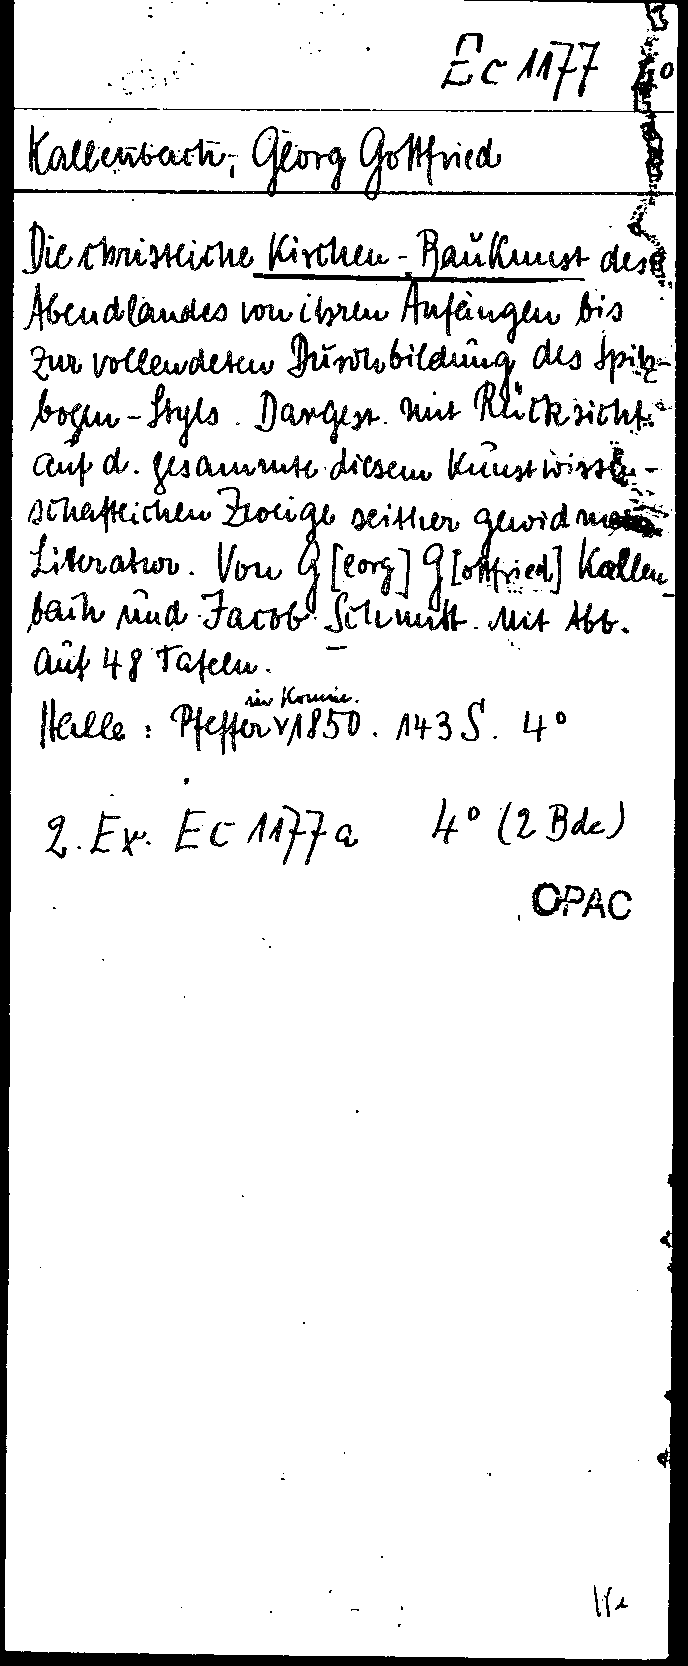 Ec 1177 4°
Kallenbach, Georg Gottfried
Die christliche Kirchen-Baukunst des
Abendlandes von ihren Anfängen bis
zur vollendeten Durchbildung des Spitz-
bogen-Styls. Dargest. mit Rücksicht
auf d. gesammte diesem kunstwissen-
schaftlichen Zweige seither gewidmete
Literatur. Von G[eorg] G[ottfried] Kallen-
bach und Jacob Schmitt. Mit Abb.
auf 48 Tafeln.
in Komm.
Halle: Pfeffer 1850. 143 S. 4°
2. Ex. Ec 1177a 4° (2 Bde)
OPAC